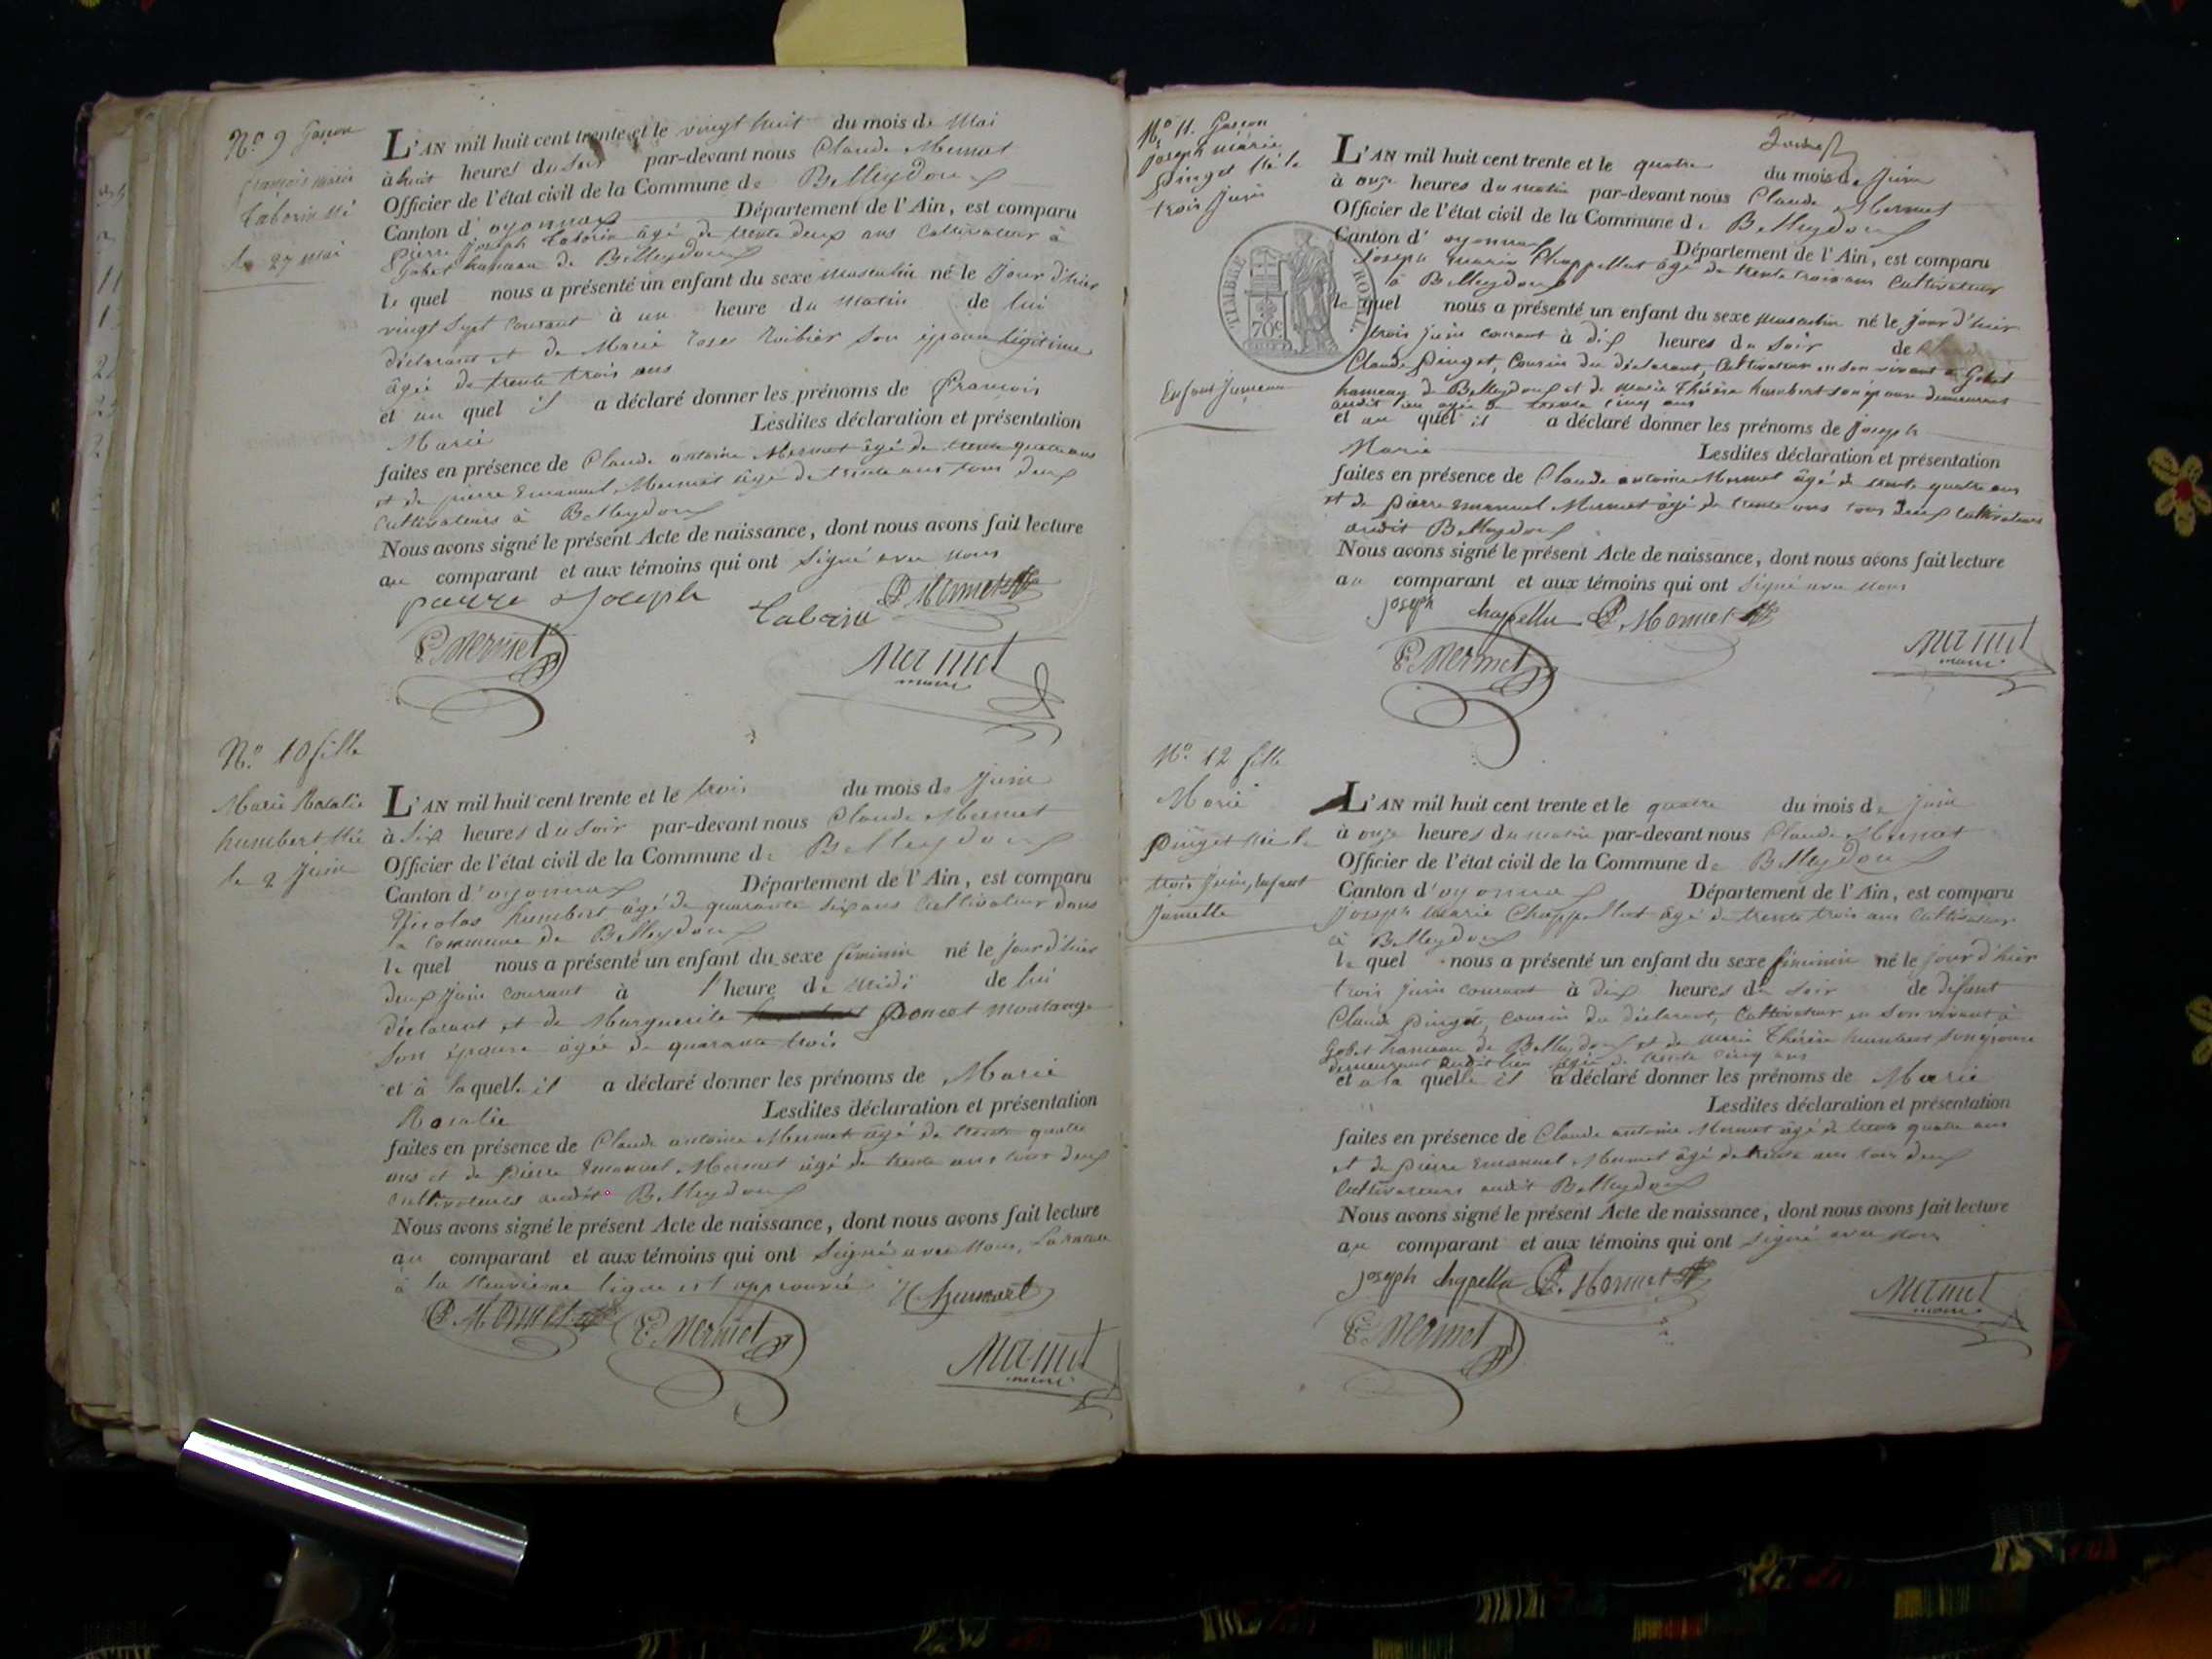 N.o 9 Garçon
François marie
Taborin né
le 27 mai
L'AN mil huit cent trente et le vingt huit du mois de Mai
à huit heures du soir par-devant nous Claude Mermet
Officier de l'état civil de la Commune de Belleydoux
Canton d'oyonnax Département de l'Ain, est comparu
Pierre Joseph Taborin âgé de trente deux ans Cultivateur à
Gobet hameau de Belleydoux
le quel nous a présenté un enfant du sexe masculin né le jour d'hier
vingt sept courant à un heure du matin de lui
déclarant et de Marie Rose son épouse légitime
âgée de trente trois ans
et au quel il a déclaré donner les prénoms de François
Marie Lesdites déclaration et présentation
faites en présence de Claude antoine Mermet âgé de trente quatre ans
et de pierre Emanuel Mermet âgé de trente ans tous deux
Cultivateurs à Belleydoux
Nous avons signé le présent Acte de naissance, dont nous avons fait lecture
au comparant et aux témoins qui ont Signé avec nous
pierre Joseph Taborin C. A. Mermet
E. Mermet Mermet
maire
N.o 10 fille
Marie Rosalie
humbert Née
le 2 Juin
L'AN mil huit cent trente et le trois du mois de Juin
à Six heures du Soir par-devant nous Claude Mermet
Officier de l'état civil de la Commune de Belleydoux
Canton d'oyonnax Département de l'Ain, est comparu
Nicolas humbert âgé de quarante Six ans Cultivateur dans
la Commune de Belleydoux
le quel nous a présenté un enfant du sexe féminin né le jour d'hier
deux Juin courant à l'heure de midi de lui
déclarant et de Marguerite Poncet Montange
Son épouse âgée de quarante trois
et à laquelle il a déclaré donner les prénoms de Marie
Rosalie Lesdites déclaration et présentation
faites en présence de Claude antoine Mermet âgé de trente quatre
ans et de Pierre Emanuel Mermet âgé de trente ans tous deux
cultivateurs audit Belleydoux
Nous avons signé le présent Acte de naissance, dont nous avons fait lecture
au comparant et aux témoins qui ont Signé avec Nous, La rature
à la Neuvieme ligne est approuvée N humbert
C. A. Mermet E. Mermet
Mermet
maire
N.o 11. Garçon
Joseph marie
Pinget Né le
trois Juin
TIMBRE ROYAL
70c
Enfant Jumeau
L'AN mil huit cent trente et le quatre du mois de Juin
à onze heures du matin par-devant nous Claude Mermet
Officier de l'état civil de la Commune de Belleydoux
Canton d'oyonnax Département de l'Ain, est comparu
Joseph Marie Chappellut âgé de trente trois ans Cultivateur
à Belleydoux
le quel nous a présenté un enfant du sexe masculin né le jour d'hier
trois juin courant à dix heures du Soir de
Claude Pinget, Cousin du déclarant, Cultivateur en son vivant à Gobet
hameau de Belleydoux et de marie Thérèse humbert son épouse demeurant
audit lieu agée de trente cinq ans
et au quel il a déclaré donner les prénoms de Joseph
Marie Lesdites déclaration et présentation
faites en présence de Claude antoine Mermet âgé de trente quatre ans
et de Pierre Emanuel Mermet âgé de trente ans tous deux Cultivateurs
audit Belleydoux
Nous avons signé le présent Acte de naissance, dont nous avons fait lecture
au comparant et aux témoins qui ont Signé avec Nous
Joseph C. A. Mermet
E. Mermet Mermet
maire
N.o 12 fille
Marie
Pinget Née le
trois Juin, Enfant
Jumelle
L'AN mil huit cent trente et le quatre du mois de Juin
à onze heures du matin par-devant nous Claude Mermet
Officier de l'état civil de la Commune de Belleydoux
Canton d'oyonnax Département de l'Ain, est comparu
Joseph Marie Chappellut âgé de trente trois ans Cultivateur
à Belleydoux
le quel nous a présenté un enfant du sexe féminin né le jour d'hier
trois juin courant à dix heures du Soir de défunt
Claude Pinget, Cousin du déclarant, Cultivateur en Son vivant à
Gobet hameau de Belleydoux et de marie Thérèse humbert Son épouse
demeurant audit lieu âgée de trente cinq ans
et à la quelle il a déclaré donner les prénoms de Marie
Lesdites déclaration et présentation
faites en présence de Claude antoine Mermet âgé de trente quatre ans
et de Pierre Emanuel Mermet âgé de trente ans tous deux
Cultivateurs audit Belleydoux
Nous avons signé le présent Acte de naissance, dont nous avons fait lecture
au comparant et aux témoins qui ont Signé avec Nous
Joseph C. A. Mermet
E. Mermet Mermet
maire